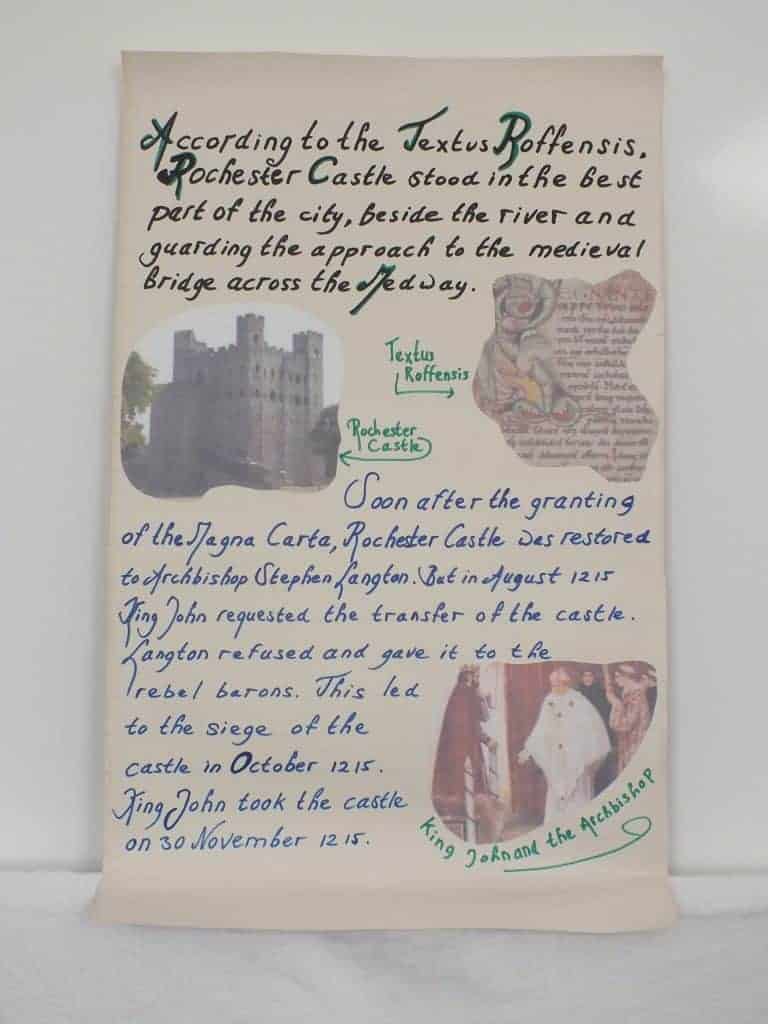 According to the Textus Roffensis,
Rochester Castle stood in the best
part of the city, beside the river and
guarding the approach to the medieval
bridge across the Medway.
Textus
Roffensis
Rochester
Castle
Soon after the granting
of the Magna Carta, Rochester Castle was restored
to Archbishop Stephen Langton. But in August 1215
King John requested the transfer of the castle.
Langton refused and gave it to the
rebel barons. This led
to the siege of the
castle in October 1215.
King John took the castle
on 30 November 1215.
King John and the Archbishop